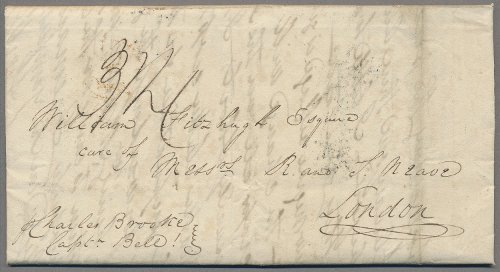 3/4
William Fitzhugh Esquire
care of Messrs R and T Neave
London
Charles Brooke
Captn Bell!